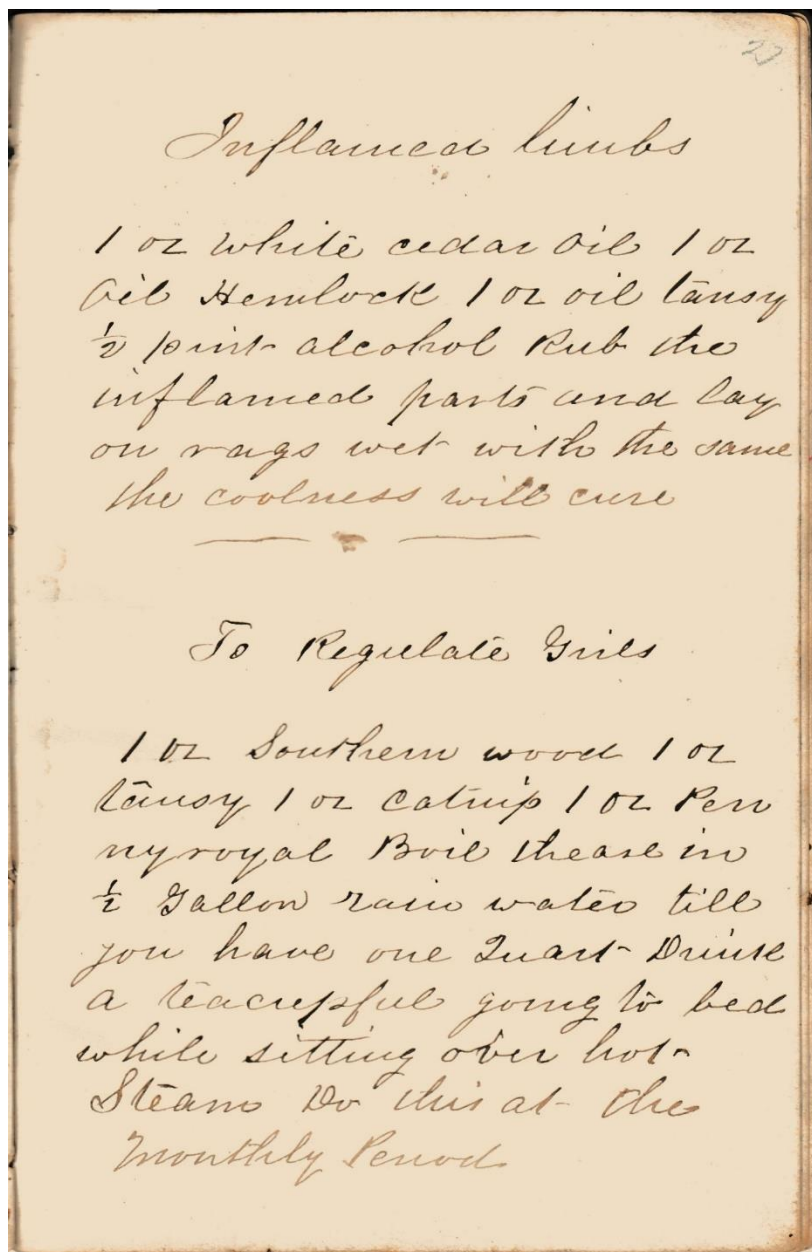 23
Inflamed limbs
1 oz White cedar Oil 1 oz
Oil Hemlock 1 oz oil tansy
½ pint alcohol Rub the
inflamed parts and lay
on rags wet with the same
the coolness will cure
To Regulate Girls
1 oz Southern wood 1 oz
tansy 1 oz Catnip 1 oz Pen
nyroyal Boil thease in
½ Gallon rain water till
you have one Quart Drink
a teacupful going to bed
while sitting over hot
Steam Do this at the
Monthly Period